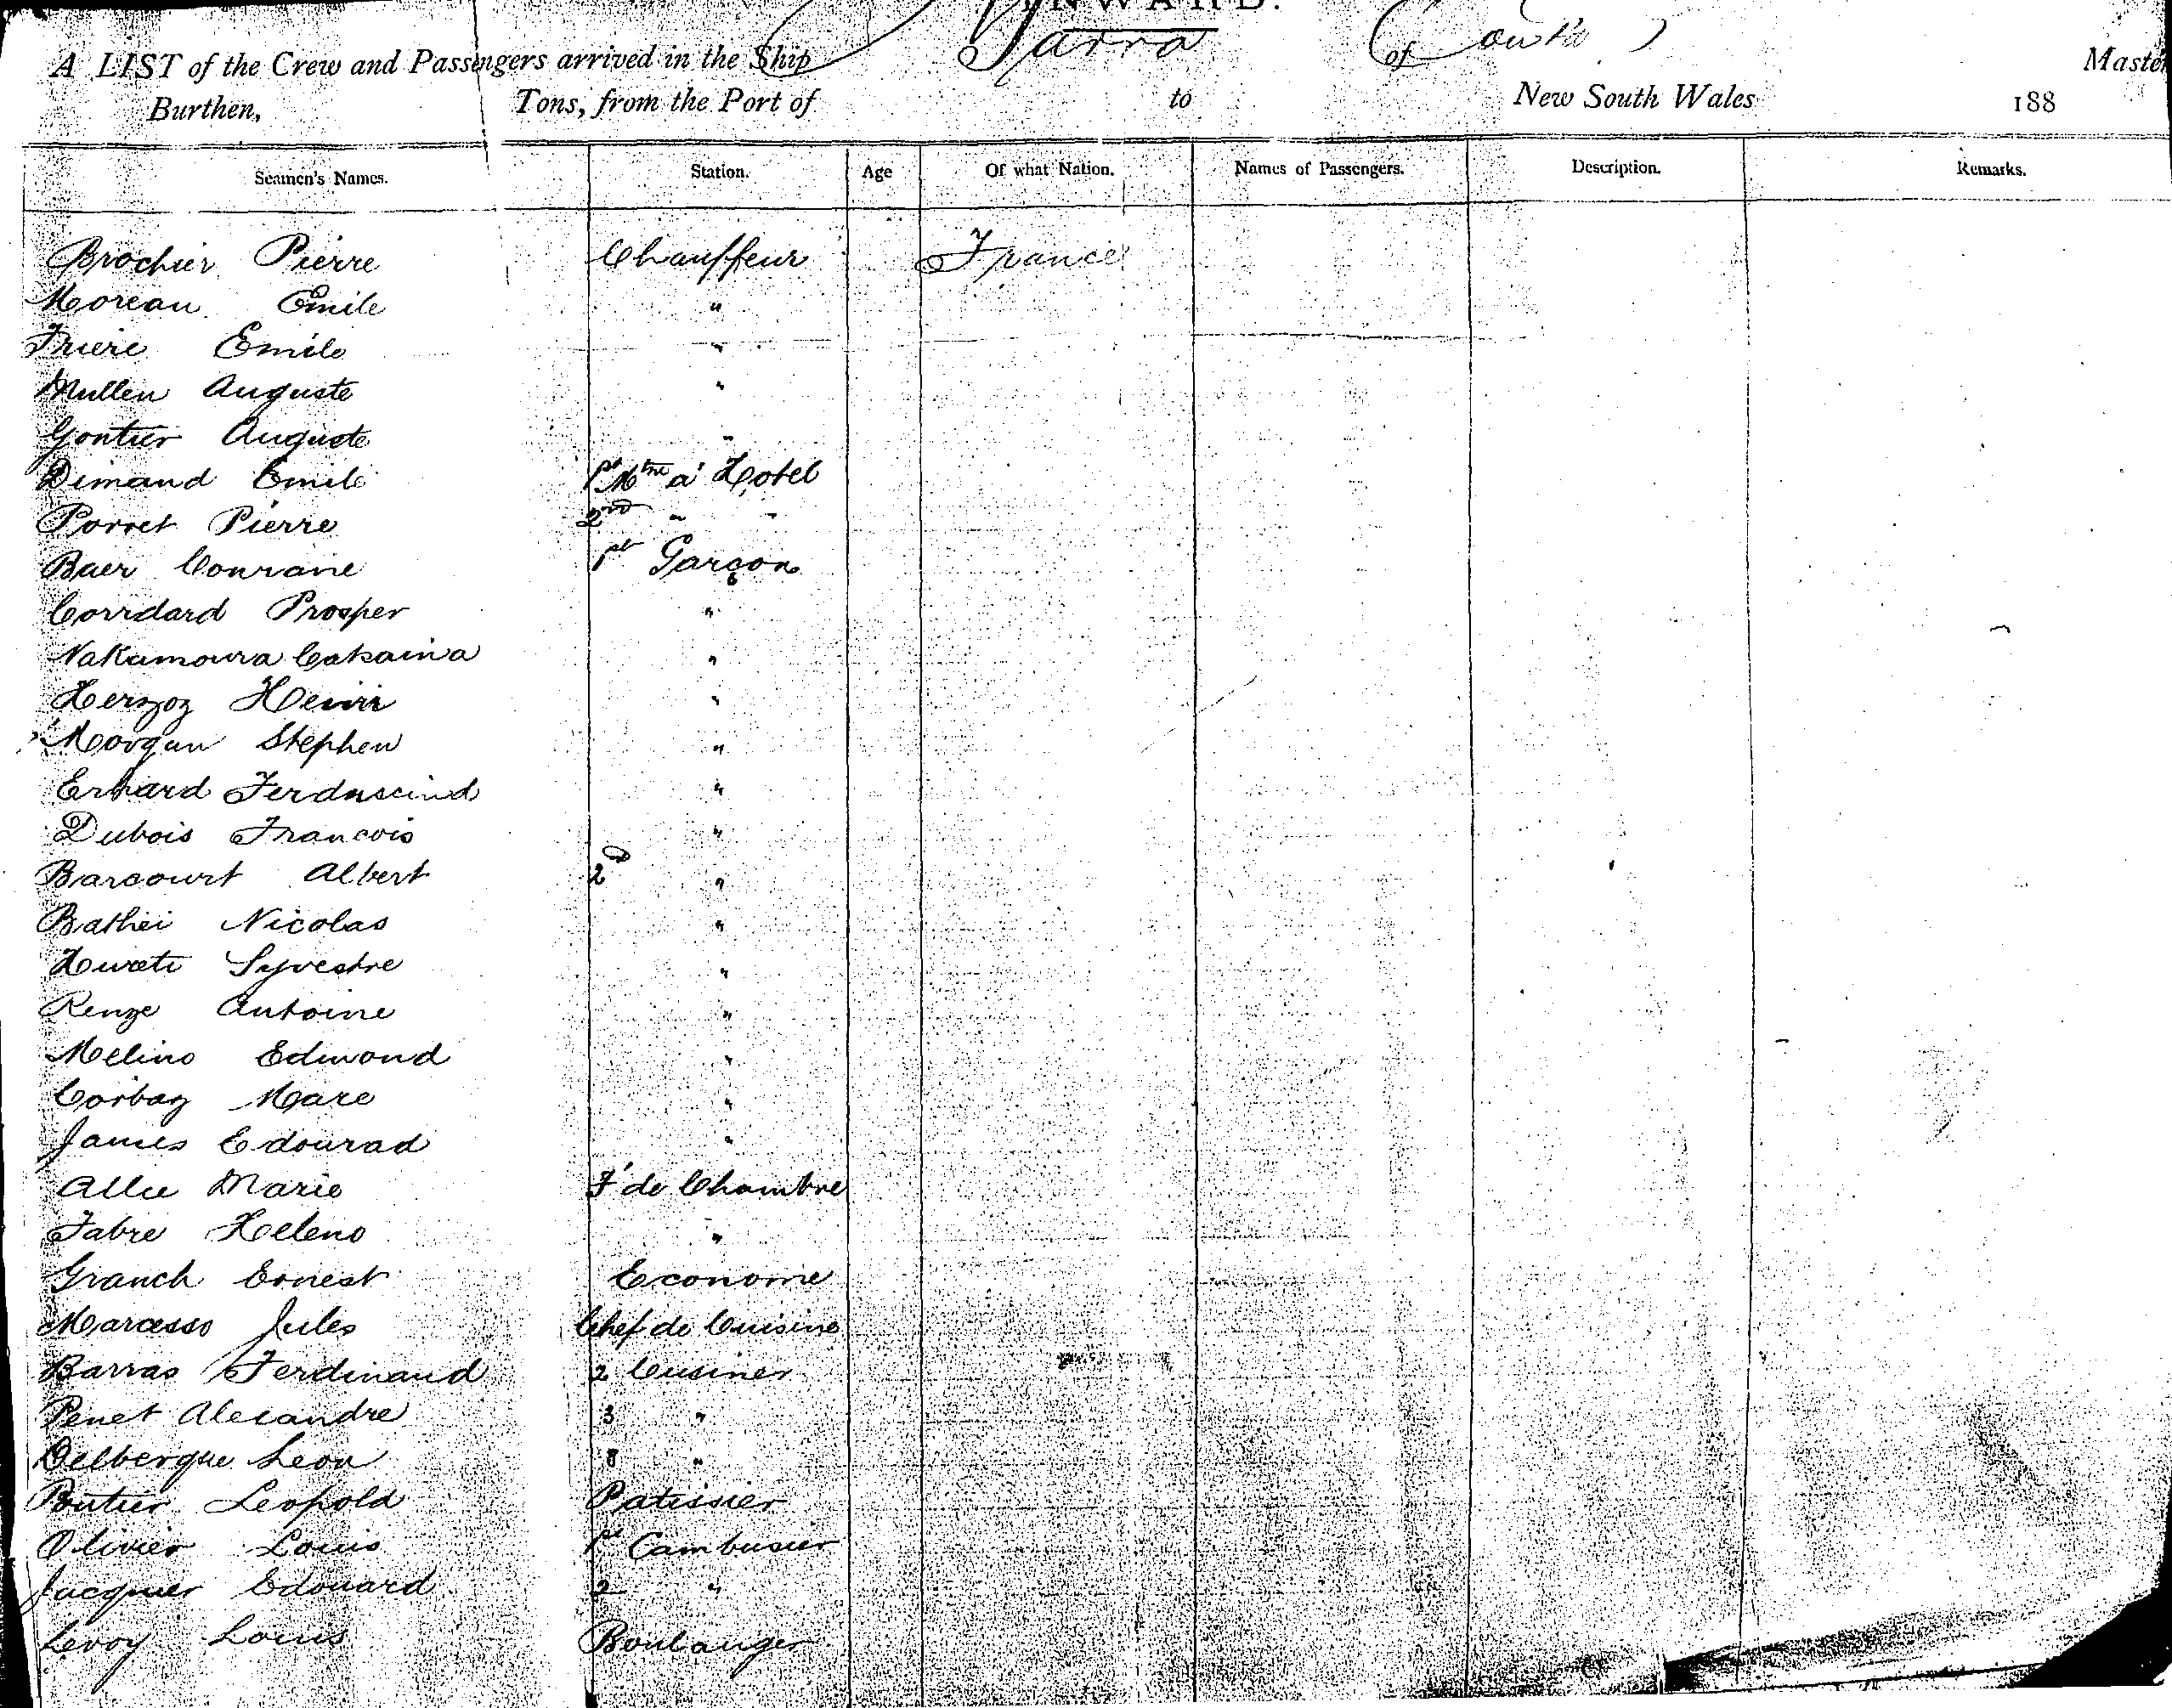 INWARD.
A LIST of the Crew and Passengers arrived in the Ship Yarra of (Cont'd) Master
Burthen, Tons, from the Port of to New South Wales 188
Seamen's Names. Station. Age Of what Nation. Names of Passengers. Description. Remarks.
Brochier Pierre Chauffeur France
Moreau Emile "
Friere Emile "
Mullen Auguste "
Gontier Auguste "
Dimand Emile 1st Mtre d' Hotel
Porret Pierre 2nd " "
Baer Conrane 1st Garçon
Corrdard Prosper "
Nakamoura "
Herzog Henri "
Morgan Stephen "
Erhard "
Dubois Francois "
Barcourt Albert 2d "
Bathei Nicolas "
Sylvestre "
Renze Antoine "
Melino Edmond "
Corbay Marc "
James Edourad "
Allie Marie F de Chambre
Fabre Helene "
Granch Ernest Econome
Marcesso Jules Chef de Cuisine
Barras Ferdinand 2 Cusiner
Penet Alexandre 3 "
Delbergue Leon "
Poutier Leopold Patissier
Olivier Louis 1st Cambusier
Jacquier Edouard 2 "
Levoy Louis Boulanger